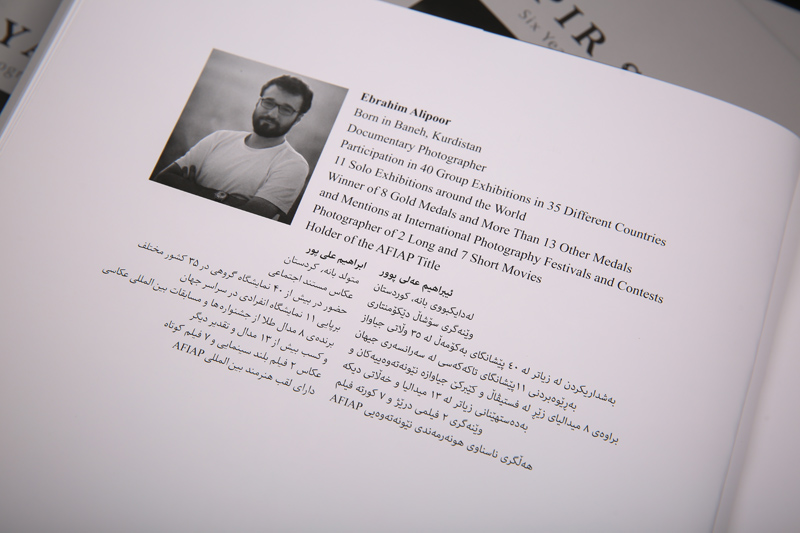 Ebrahim Alipoor
Born in Baneh, Kurdistan
Documentary Photographer
Participation in 40 Group Exhibitions in 35 Different Countries
11 Solo Exhibitions around the World
Winner of 8 Gold Medals and More Than 13 Other Medals
and Mentions at International Photography Festivals and Contests
Photographer of 2 Long and 7 Short Movies
Holder of the AFIAP Title
ابراهیم علی پور
متولد بانه، کردستان
عکاس مستند اجتماعی
حضور در بیش از ۴۰ نمایشگاه گروهی در ۳۵ کشور مختلف
برپایی ۱۱ نمایشگاه انفرادی در سراسر جهان
برنده‌ی ۸ مدال طلا از جشنواره‌ها و مسابقات بین المللی عکاسی
و کسب بیش از ۱۳ مدال و تقدیر دیگر
عکاس ۲ فیلم بلند سینمایی و ۷ فیلم کوتاه
دارای لقب هنرمند بین المللی AFIAP
ئیبراهیم عەلی پوور
لەدایکبووی بانە، کوردستان
وێنەگری سۆشیاڵ دێکۆمنتاری
بەشداریکردن لە زیاتر لە ٤٠ پێشانگای بەکۆمەڵ لە ٣٥ وڵاتی جیاواز
بەڕێوەبردنی ١١ پێشانگای تاکەکەسی لە سەرانسەری جیهان
براوەی ٨ میدالیای زێڕ لە فستیڤاڵ و کێبرکێ جیاوازە نێونەتەوەییەکان و
بەدەستهێنانی زیاتر لە ١٣ میدالیا و خەڵاتی دیکە
وێنەگری ٢ فیلمی درێژ و ٧ کورتە فیلم
هەڵگری ناسناوی هونەرمەندی نێونەتەوەیی AFIAP
Six Ye